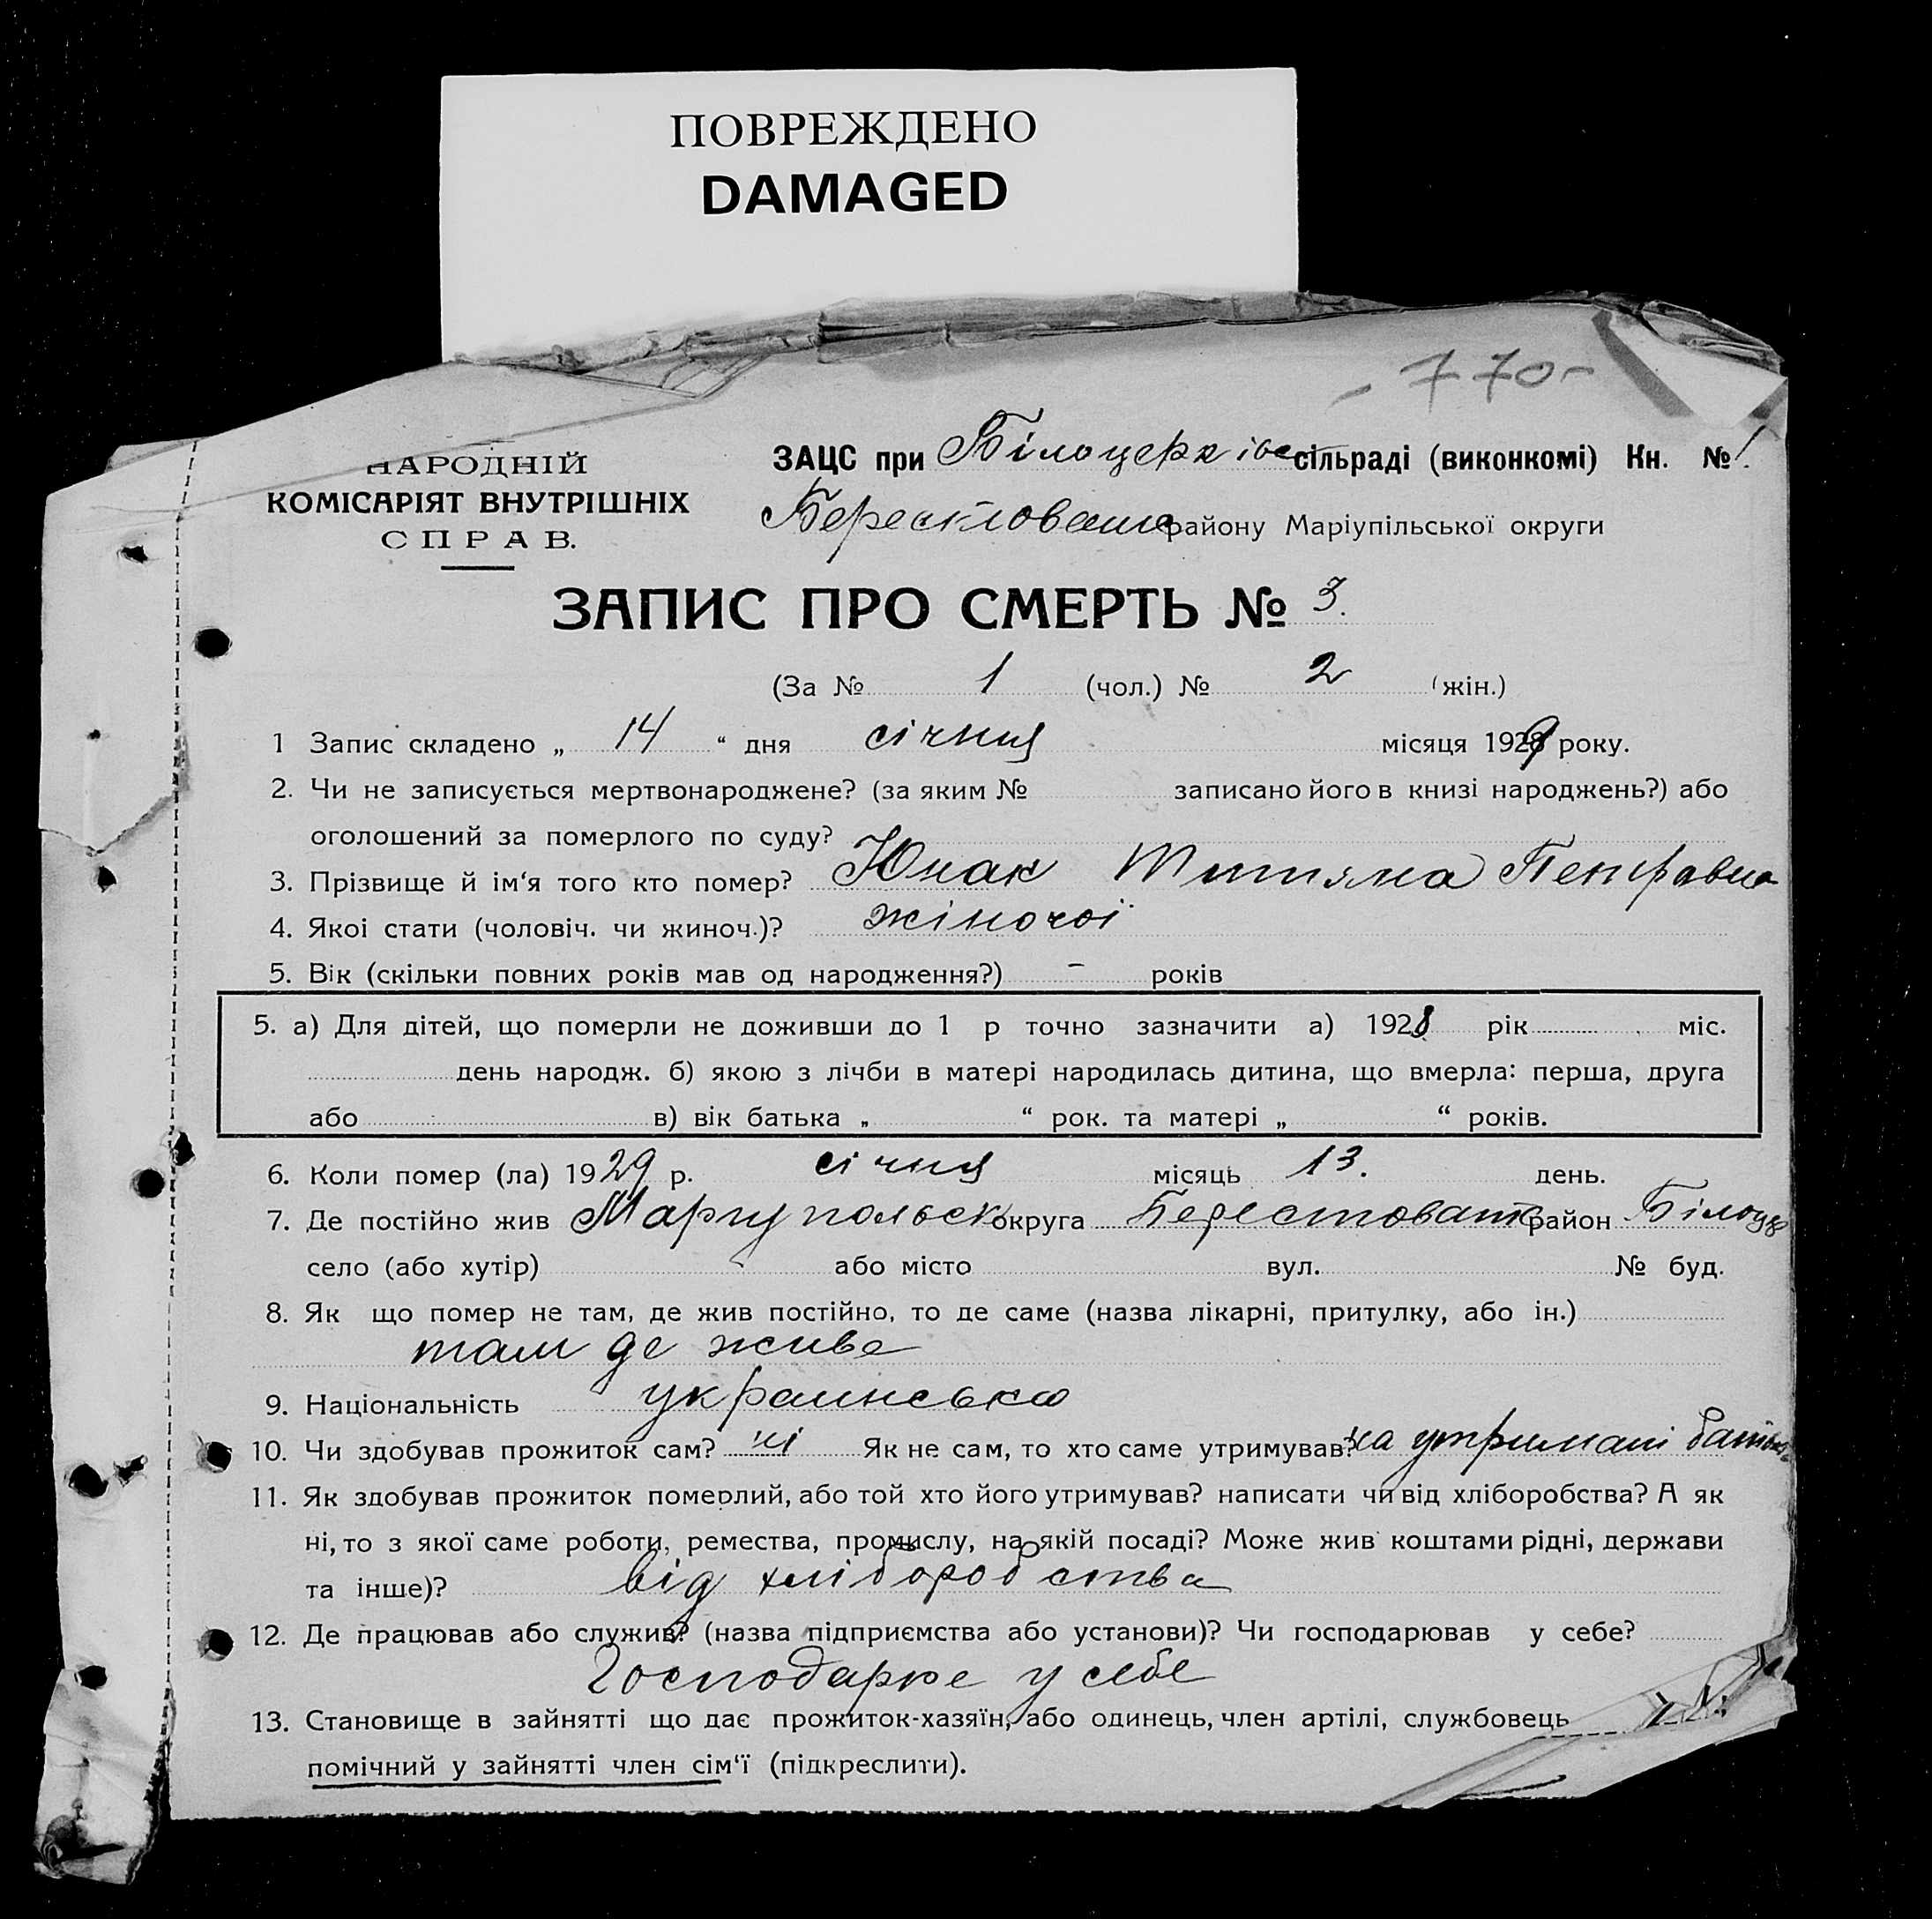 ПОВРЕЖДЕНО
DAMAGED
- 770 -
НАРОДНІЙ
КОМІСАРІЯТ ВНУТРІШНІХ
СПРАВ.
ЗАЦС при Білоцерківс сільраді (виконкомі) Кн. № 1.
Берестоват району Маріупільської округи
ЗАПИС ПРО СМЕРТЬ № 3.
(За № 1 (чол.) № 2 (жін.)
1 Запис складено „ 14 “ дня січня місяця 1929 року.
2. Чи не записується мертвонароджене? (за яким № записано його в книзі народжень?) або
оголошений за померлого по суду?
3. Прізвище й ім‘я того кто помер? Юнак Титяна Петравна
4. Якоі стати (чоловіч. чи жиноч.)? жіночоі
5. Вік (скільки повних років мав од народження?) - років
5. а) Для дітей, що померли не доживши до 1 р точно зазначити а) 1928 рік міс.
день народж. б) якою з лічби в матері народилась дитина, що вмерла: перша, друга
або в) вік батька „ “ рок. та матері „ “ років.
6. Коли помер (ла) 1929 р. січня місяць 13. день.
7. Де постійно жив Маріупольськ округа Берестоват район Білоцр
село (або хутір) або місто вул. № буд.
8. Як що помер не там, де жив постійно, то де саме (назва лікарні, притулку, або ін.)
там де живе
9. Національність украинська
10. Чи здобував прожиток сам? ні Як не сам, то хто саме утримував? на утримані батьк
11. Як здобував прожиток померлий, або той хто його утримував? написати чи від хліборобства? А як
ні, то з якої саме роботи, ремества, промислу, на якій посаді? Може жив коштами рідні, держави
та інше)? від хліборобства
12. Де працював або служив? (назва підприємства або установи)? Чи господарював у себе?
Господарке у себе
13. Становище в зайнятті що дає прожиток-хазяїн, або одинець, член артілі, службовець
помічний у зайнятті член сім‘ї (підкреслити).